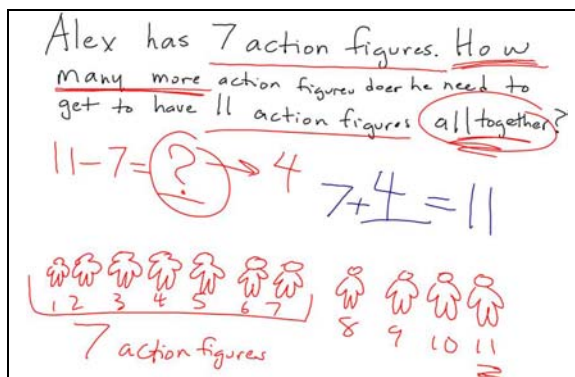 Alex has 7 action figures. How
many more action figures does he need to
get to have 11 action figures all together?
11-7=? → 4
7+4=11
1 2 3 4 5 6 7 8 9 10 11
7 action figures